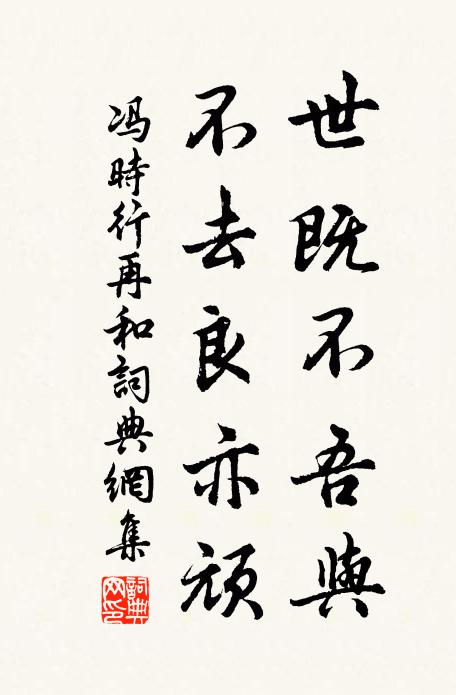 世既不吾與
不去良亦頑
冯時行再和詞典網集
詞典网印